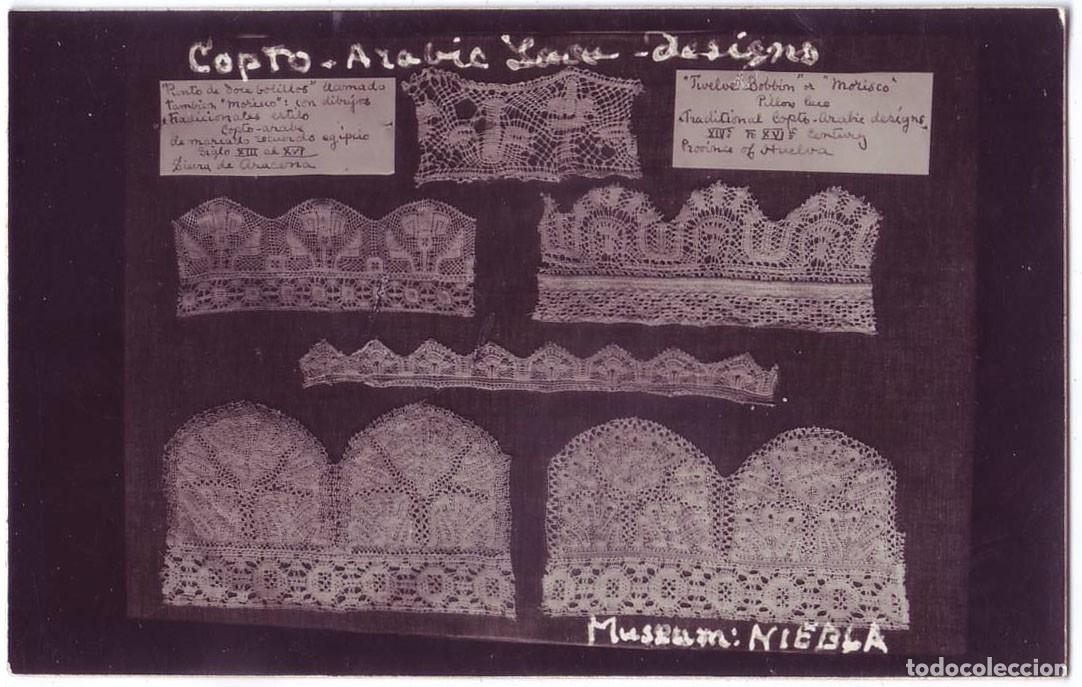 Copto-Arabic Lace-Designs
"Punto de doce bolillos" llamado
tambien "Morisco": con dibujos
tradicionales estilo
Copto-arabe
de marcado recuerdo egipcio
Siglo XIII al XVI
Sierra de Aracena
"Twelve Bobbin" or "Morisco"
Pillow lace
Traditional Copto-Arabic designs
to XVI century
Province of Huelva
Museum: NIEBLA
todocoleccion